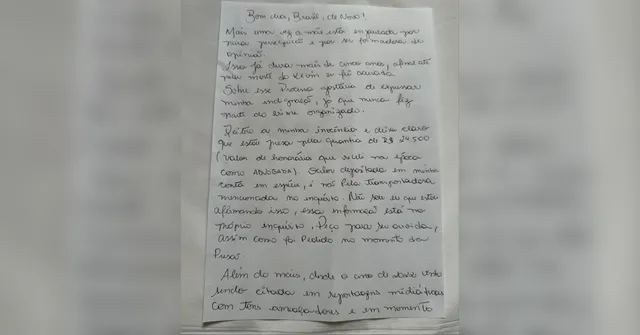 Bom dia, Brasil, de Novo!
Mais uma vez a mãe está enjaulada por
pura perseguição e por ser formadora de
opinião.
Isso já dura mais de cinco anos, afinal até
pela morte do Kevin eu fui acusada
Sobre esse Processo gostaria de expressar
minha indignação, já que nunca fiz
parte do crime organizado.
Reitero a minha inocência e deixo claro
que estou presa pela quantia de R$ 24.500
(valor de honorários que recebi na época
como ADVOGADA). Valor depositado em minha
conta em espécie, e não pela transportadora
mencionada no inquérito. Não sou eu que estou
afirmando isso, essa informação está no
próprio inquérito. Peço para ser ouvida,
assim como foi Pedido no momento da
Prisão
Além do mais, desde o ano de venho
sendo citada em reportagens midiáticas
com tons ameaçadores e em momento